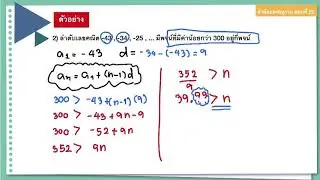 ตัวอย่าง
2) ลำดับเลขคณิต -43, -34, -25, ... มีพจน์ที่มีค่าน้อยกว่า 300 อยู่กี่พจน์
a₁ = -43 d = -34 - (-43) = 9
aₙ = a₁ + (n-1)d
300 > -43 + (n-1)(9)
300 > -43 + 9n - 9
300 > -52 + 9n
352 > 9n
352/9 > n
39.99 > n